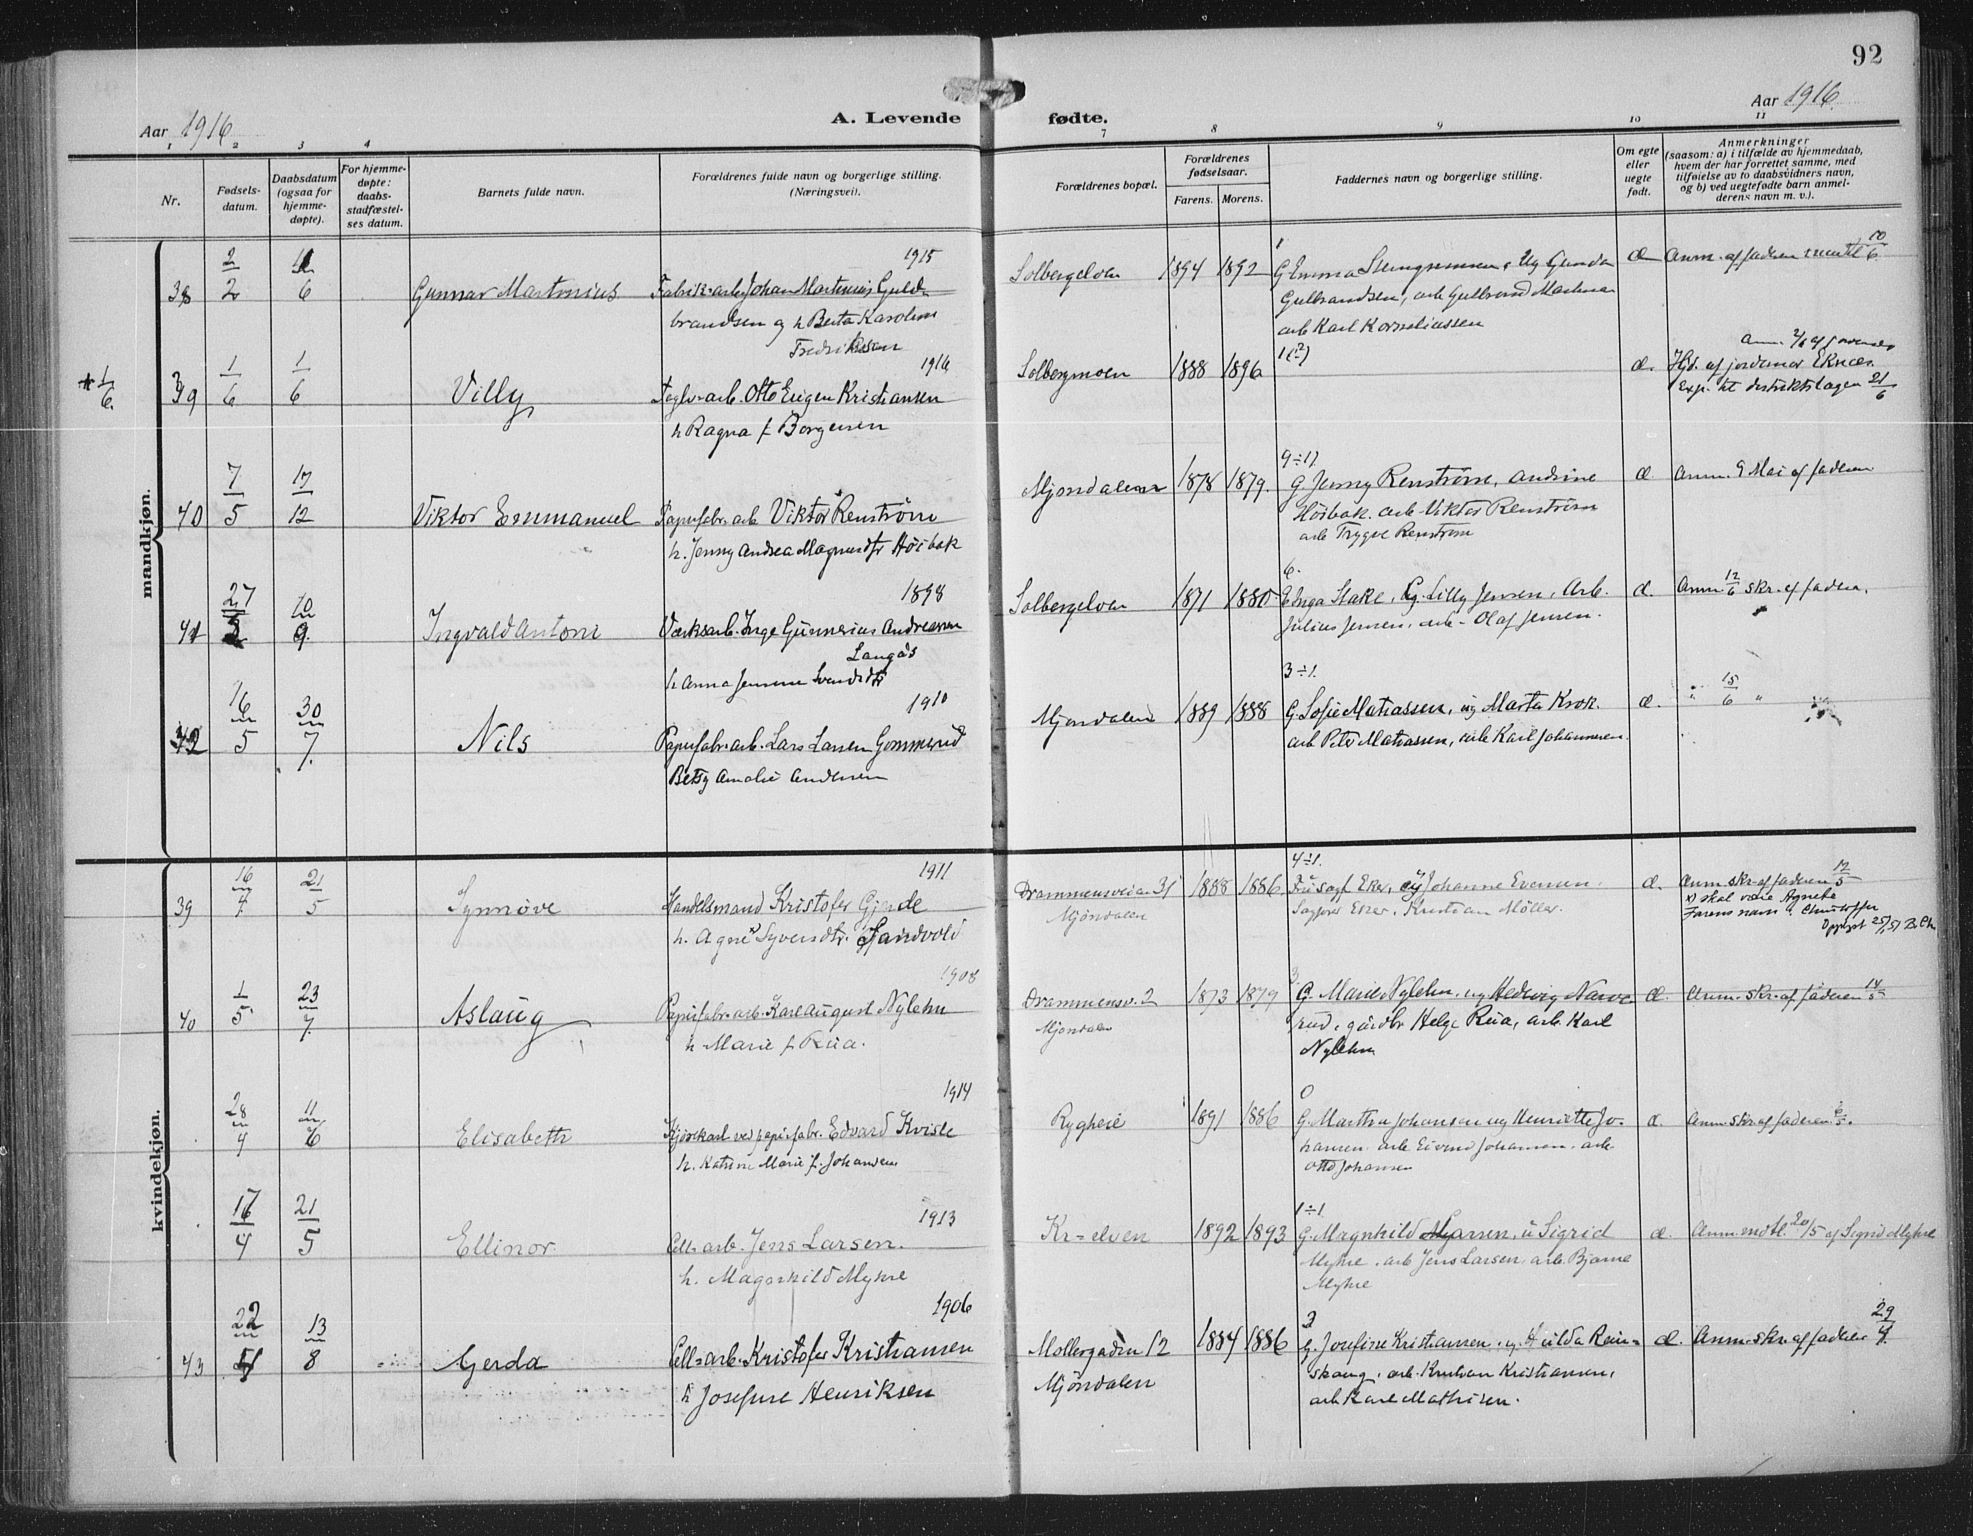 92
Aar 1916
A. Levende fødte.
Aar 1916.
1 2 3 4 7 8 9 10 11
Nr.
Fødsels-
datum.
Daabsdatum
(ogsaa for
hjemme-
døpte).
For hjemme-
døpte:
daabs-
stadfæstel-
ses datum.
Barnets fulde navn.
Forældrenes fulde navn og borgerlige stilling.
(Næringsvei).
Forældrenes bopæl.
Forældrenes
fødselsaar.
Farens. Morens.
Faddernes navn og borgerlige stilling.
Om egte
eller
uegte
født.
Anmerkninger
(saasom: a) i tilfælde av hjemmedaab,
hvem der har forrettet samme, med
tilføielse av to daabsvidners navn,
og b) ved uegtefødte barn anmel-
derens navn m. v.).
mandkjøn.
1915
38 2/2 6 Gunnar Martinius Fabrik-arb. Johan Martinius Guld-
brandsen og h Berta Karoline
Fredriksen
Solbergelven 1894 1892
1
G Emma Ug Gunda
Gulbrandsen, arb Gulbrand
arb Karl Korneliassen
æ Anm. af faderen mundtl 10/6
1916
* 1/6. 39 1/6 1/6 Villy Teglv-arb. Otto Eugen Kristiansen
h Ragna f. Borgersen
Solbergmoen 1888 1896
1(?)
æ. Anm. 2/6 af jordmor
Hjd. af jordmor Eknæs.
Exp. til distriktslægen 21/6
40 7/5 17/12 Viktor Emmanuel Papirfabr. arb Viktor Renstrøm
h. Jenny Andrea Magnusdtr Høibak
Mjøndalen 1878 1879.
9÷1).
G Jenny Renstrøm, Andrine
Høibak. arb Viktor Renstrøm
arb Trygve Renstrøm
æ. Anm. 9 Mai af faderen
1898
41 27/2 10/9. Ingvald Antoni Værksarb. Inge Gunnerius Andreassen
Langås
h Anna Jensine Svendsdtr
Solbergelven 1871 1880
6.
E Inga Stake, Ug. Lilly Jensen, Arb.
Julius Jensen, arb- Olaf Jensen.
æ. Anm 12/6 skr. af faderen.
1910
42 16/5 30/7. Nils Papirfabr. arb. Lars Larsen Gommerud
Betsy Amalie Andersen
Mjøndalen 1889 1888
3÷1.
G. Sofie Matiassen, ug Marta Krok.
arb Peter Matiassen, arb Karl Johannesen.
æ. " 15/6 "
kvindekjøn.
1911
39 16/4. 21/5 Synnøve Handelsmand Kristofer Gjerde
h. Agnex Syversdtr. Sandvold
Drammensveien 31
Mjøndalen
1888 1886
4÷1.
Fru sagf Eker, Johanne Evensen.
Sagfører Eker, Kristian Møller.
æ. Anm. skr. af faderen 12/5
x) skal være Agnethe
Farens navn: Christoffer
Opplyst 25/1 51 B. Ch
1908
40 1/5. 23/7. Aslaug Papirfabr. arb. Karl August Nylehn
h Marie f. Rua.
Drammensv. 2
Mjøndalen
1873 1879
3
G. Marie Nylehn, ug Hedvig Narve-
rud, gårdbr Helge Rua, arb. Karl
Nylehn
æ. Anm. skr. af faderen 14/5
1914
28/4 11/6 Elisabeth Kjørekarl ved papirfabr. Edvard Kvisle
h. Katrine Marie f. Johansen
Rygheie 1891 1886
0
G. Martha Johansen ug Henriette Jo-
hansen. arb Eivind Johansen. arb.
Otto Johansen
æ. Anm. skr. af faderen 6/5.
1913
17/4 21/5 Ellinor Cell-arb. Jens Larsen.
h. Magnhild Myhre
Kr-elven 1892 1893
1÷1.
G. Magnhild Larsen, u Sigrid
Myhre. arb Jens Larsen, arb. Bjarne
Myhre
æ. Anm. mdtl. 20/5 af Sigrid Myhre
1906
43 22/4 13/8 Gerda Cell-arb. Kristofer Kristiansen
h Josefine Henriksen
Møllergaden 12
Mjøndalen
1884 1886
3
G. Josefine Kristiansen, ug. Hulda Rein-
skaug, arb. Kristian Kristiansen,
arb Karl Mathisen.
æ. Anm. skr. af faderen 29/4.